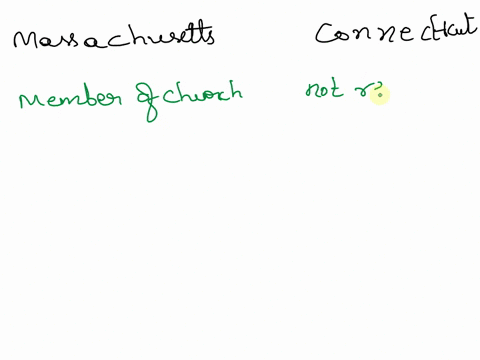 Massachusetts Connecticut
Member of church not r